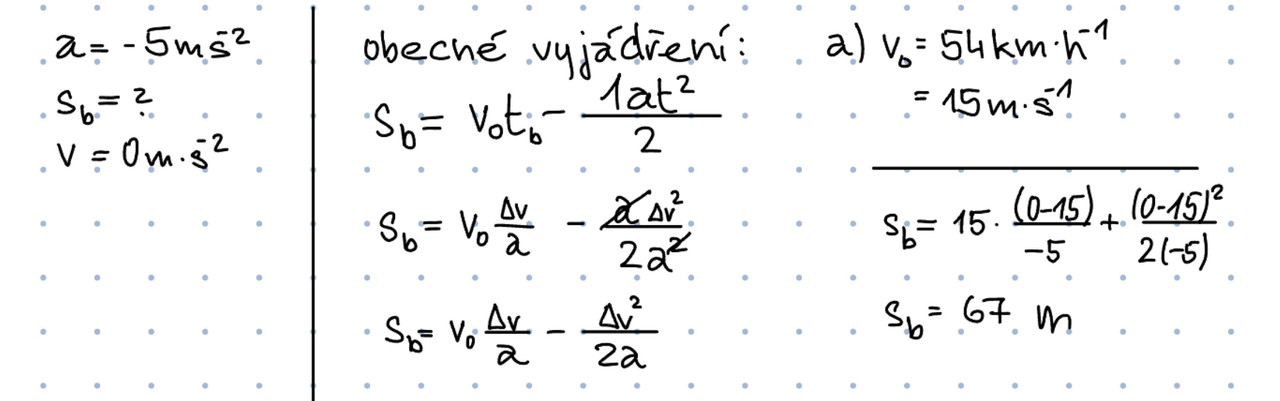 a = -5ms⁻²
s_b = ?
v = 0m·s⁻²
obecné vyjádření:
s_b = v₀t_b - 1at²/2
s_b = v₀ Δv/a - aΔv²/2a²
s_b = v₀ Δv/a - Δv²/2a
a) v₀ = 54km·h⁻¹
= 15m·s⁻¹
s_b = 15 · (0-15)/-5 + (0-15)²/2(-5)
s_b = 67 m